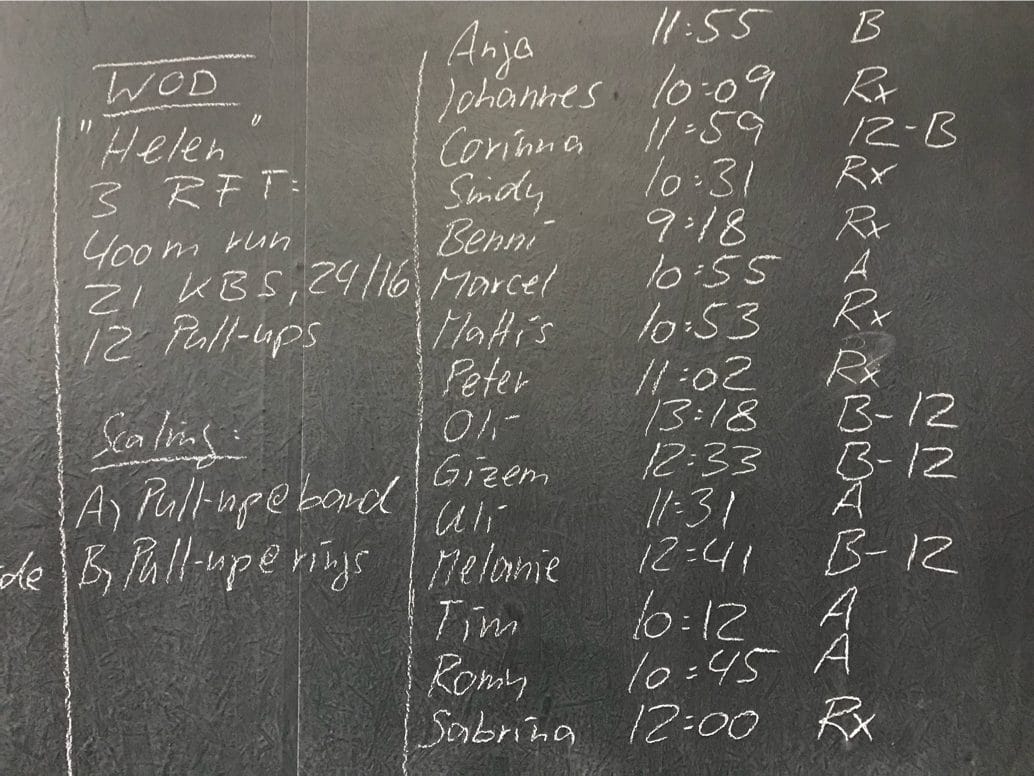 WOD
"Helen"
3 RFT:
400m run
21 KBS, 24/16
12 Pull-ups
Scaling:
A) Pull-up@band
B) Pull-up@rings
de
Anja 11:55 B
Johannes 10:09 Rx
Corinna 11:59 12-B
Sindy 10:31 Rx
Benni 9:18 Rx
Marcel 10:55 A
Mattis 10:53 Rx
Peter 11:02 Rx
Oli 13:18 B-12
Gizem 12:33 B-12
Uli 11:31 A
Melanie 12:41 B-12
Tim 10:12 A
Romy 10:45 A
Sabrina 12:00 Rx